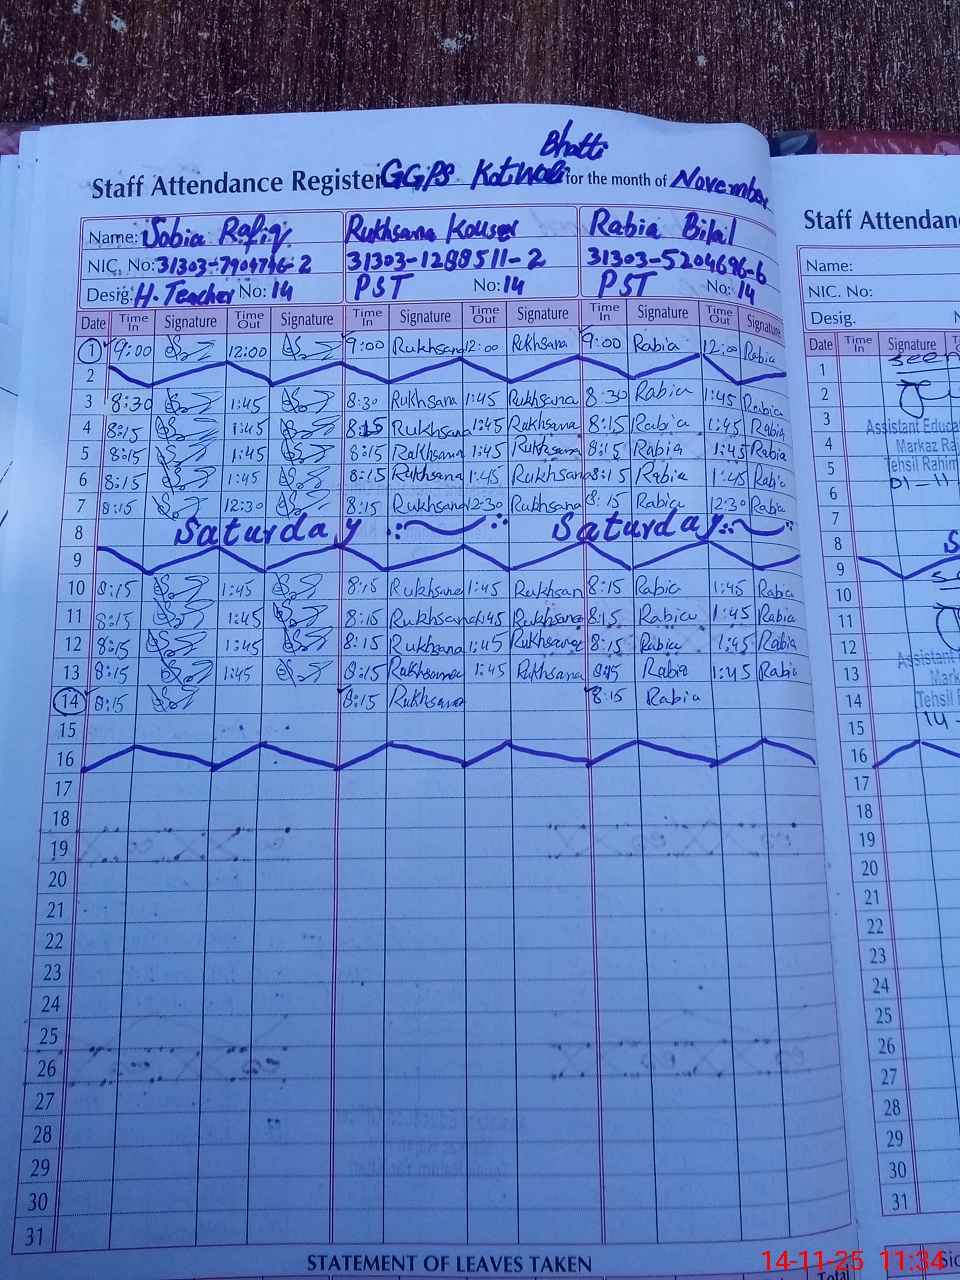 Bhatti
Staff Attendance Register GGPS Kotwali for the month of November
Name: Sobia Rafiq Rukhsana Kouser Rabia Bilal
NIC. No: 31303-7904796-2 31303-1288511-2 31303-5204696-6
Desig: H. Teacher No: 14 PST No: 14 PST No: 14
Date Time In Signature Time Out Signature Time In Signature Time Out Signature Time In Signature Time Out Signature
1 9:00 12:00 9:00 Rukhsana 12:00 Rukhsana 9:00 Rabia 12:00 Rabia
2
3 8:30 1:45 8:30 Rukhsana 1:45 Rukhsana 8:30 Rabia 1:45 Rabia
4 8:15 1:45 8:15 Rukhsana 1:45 Rukhsana 8:15 Rabia 1:45 Rabia
5 8:15 1:45 8:15 Rukhsana 1:45 Rukhsana 8:15 Rabia 1:45 Rabia
6 8:15 1:45 8:15 Rukhsana 1:45 Rukhsana 8:15 Rabia 1:45 Rabia
7 8:15 12:30 8:15 Rukhsana 12:30 Rukhsana 8:15 Rabia 12:30 Rabia
8 Saturday Saturday
9
10 8:15 1:45 8:15 Rukhsana 1:45 Rukhsan 8:15 Rabia 1:45 Rabia
11 8:15 1:45 8:15 Rukhsana 1:45 Rukhsana 8:15 Rabia 1:45 Rabia
12 8:15 1:45 8:15 Rukhsana 1:45 Rukhsana 8:15 Rabia 1:45 Rabia
13 8:15 1:45 8:15 Rukhsana 1:45 Rukhsana Rabia 1:45 Rabia
14 8:15 8:15 Rukhsana 8:15 Rabia
15
16
17
18
19
20
21
22
23
24
25
26
27
28
29
30
31
STATEMENT OF LEAVES TAKEN
Staff Attendan
Name:
NIC. No:
Desig.
Date Time In Signature
1 seen
2
3 Assistant Educa
4 Markaz Ra
5 Tehsil Rahim
6 01-11
7
8 S
9
10
11
12 Assistant
13 Mark
14 Tehsil
15 14-
16
17
18
19
20
21
22
23
24
25
26
27
28
29
30
31
14-11-25 11:34